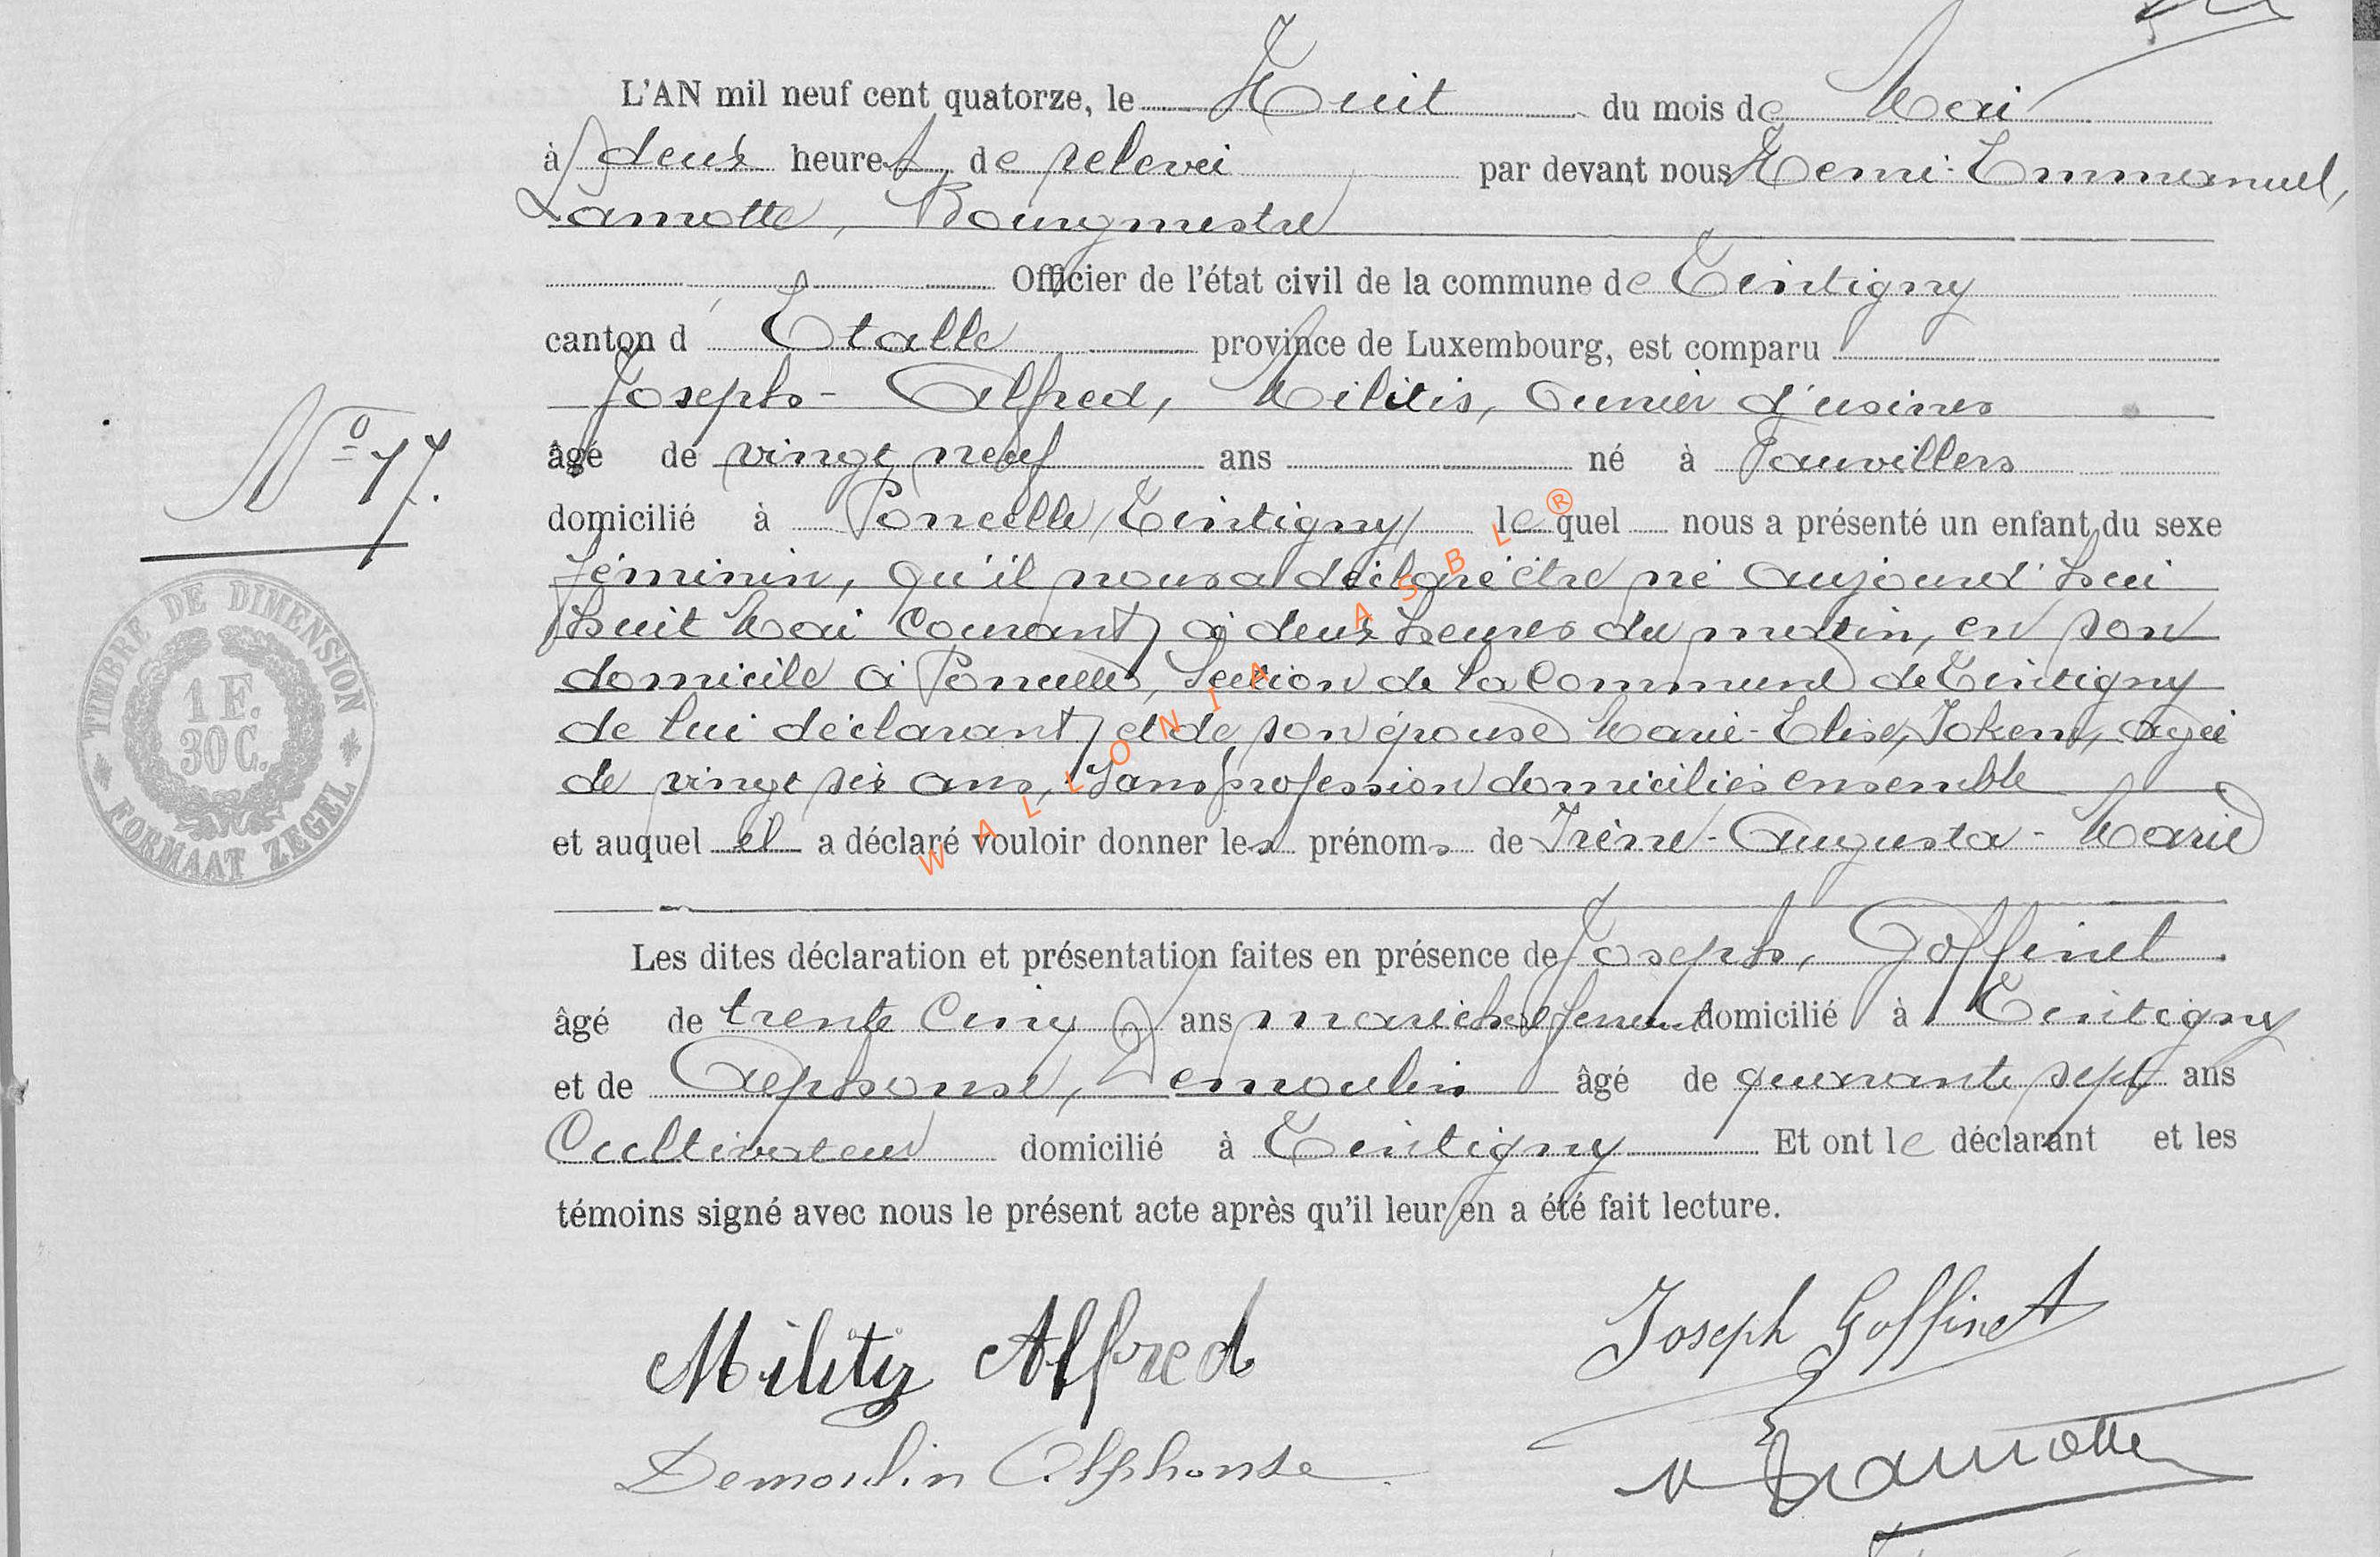 L'AN mil neuf cent quatorze, le Huit du mois de Mai
à deux heures de relevée par devant nous Henri-Emmanuel,
Lamotte, Bourgmestre
Officier de l'état civil de la commune de Tintigny
canton d'Etalle province de Luxembourg, est comparu
Joseph-Alfred, Militis, ouvrier d'usines
âgé de vingt neuf ans né à Fauvillers
domicilié à Poncelle, Tintigny, lequel nous a présenté un enfant du sexe
féminin, qu'il nous a déclaré être né aujourd'hui
huit Mai courant, à deux heures du matin, en son
domicile à Poncelle, Section de la Commune de Tintigny
de lui déclarant, et de son épouse Marie-Elise, Joken, agée
de vingt six ans, Sans profession domiciliés ensemble
et auquel il a déclaré vouloir donner les prénoms de Irène-Augusta-Marie
Les dites déclaration et présentation faites en présence de Joseph, Goffinet
âgé de trente cinq ans maréchal ferrant domicilié à Tintigny
et de Alphonse, Demoulin âgé de quarante sept ans
Cultivateur domicilié à Tintigny Et ont le déclarant et les
témoins signé avec nous le présent acte après qu'il leur en a été fait lecture.
No 17.
TIMBRE DE DIMENSION
1 F.
30 C.
FORMAAT ZEGEL
WALLONIA ASBL ®
Militis Alfred
Joseph Goffinet
Demoulin Alphonse
Lamotte